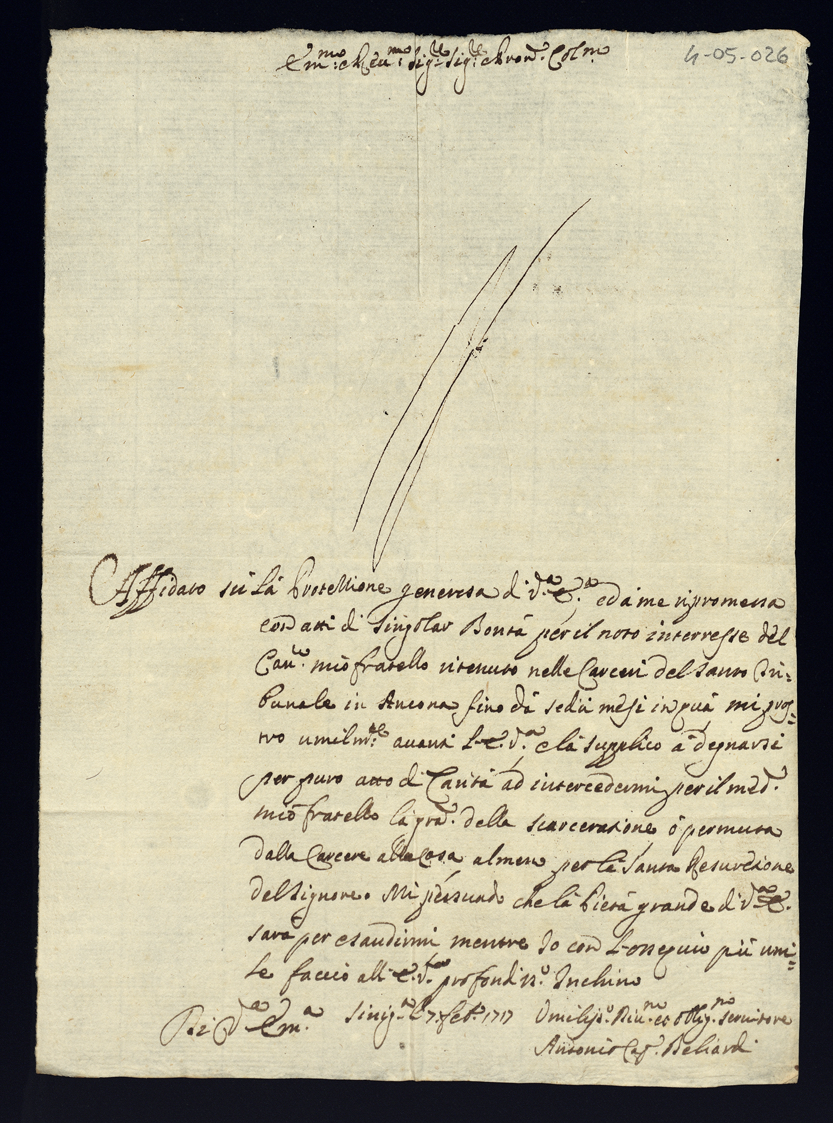 Em.mo e Re.mo Sig.re Sig.re e Pron.e Col.mo
4-05-026
Affidato sù là Protettione generosa di V.a E.a ed à me ripromessa
con atti di singolar Bontà per il noto interresse del
Cau.re mio fratello ritenuto nelle Carceri del santo Tri=
bunale in Ancona fino dà sedici mesi in quà mi pros=
tro umilm.te auanti l'E.V.a e là supplico à degnarsi
per puro atto di Carità ad intercedermi per il med.o
mio fratello là gra.a della scarcerazione ò permuta
dalla Carcere alla Casa almen per là santa Resurezione
del Signore. Mi persuado che là Pietà grande di V.a E.
sarà per esaudirmi mentre Io con l'ossequio più umi=
le faccio all'E.V.a profondiss.o Inchino
Di V.a Em.a Sinig.a 7. feb.o 1717 Umiliss.o Diu.mo et Oblig.mo seruitore
Antonio Beliardi